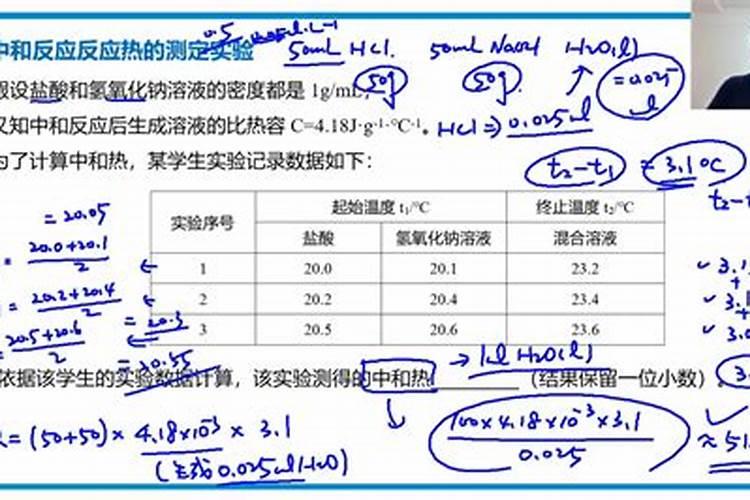 中和反应反应热的测定实验
0.5
50mL HCl. 50mL NaOH H₂O(l)
设盐酸和氢氧化钠溶液的密度都是 1g/mL,
50g 50g. =0.025
知中和反应后生成溶液的比热容 C=4.18J·g⁻¹·℃⁻¹。 HCl ⇒ 0.025mol
了计算中和热，某学生实验记录数据如下：
t₂-t₁ = 3.1℃
实验序号 起始温度 t₁/℃ 终止温度 t₂/℃
盐酸 氢氧化钠溶液 混合溶液
1 20.0 20.1 23.2
2 20.2 20.4 23.4
3 20.5 20.6 23.6
=20.05
20.0+20.1
2
= 20.2+20.4
2
= 20.3
20.5+20.6
2
= 20.55
→ 1mol H₂O(l)
依据该学生的实验数据计算，该实验测得的中和热 （结果保留一位小数）
=(50+50)× 4.18×10⁻³ × 3.1
(生成0.025molH₂O)
100×4.18×10⁻³×3.1
0.025